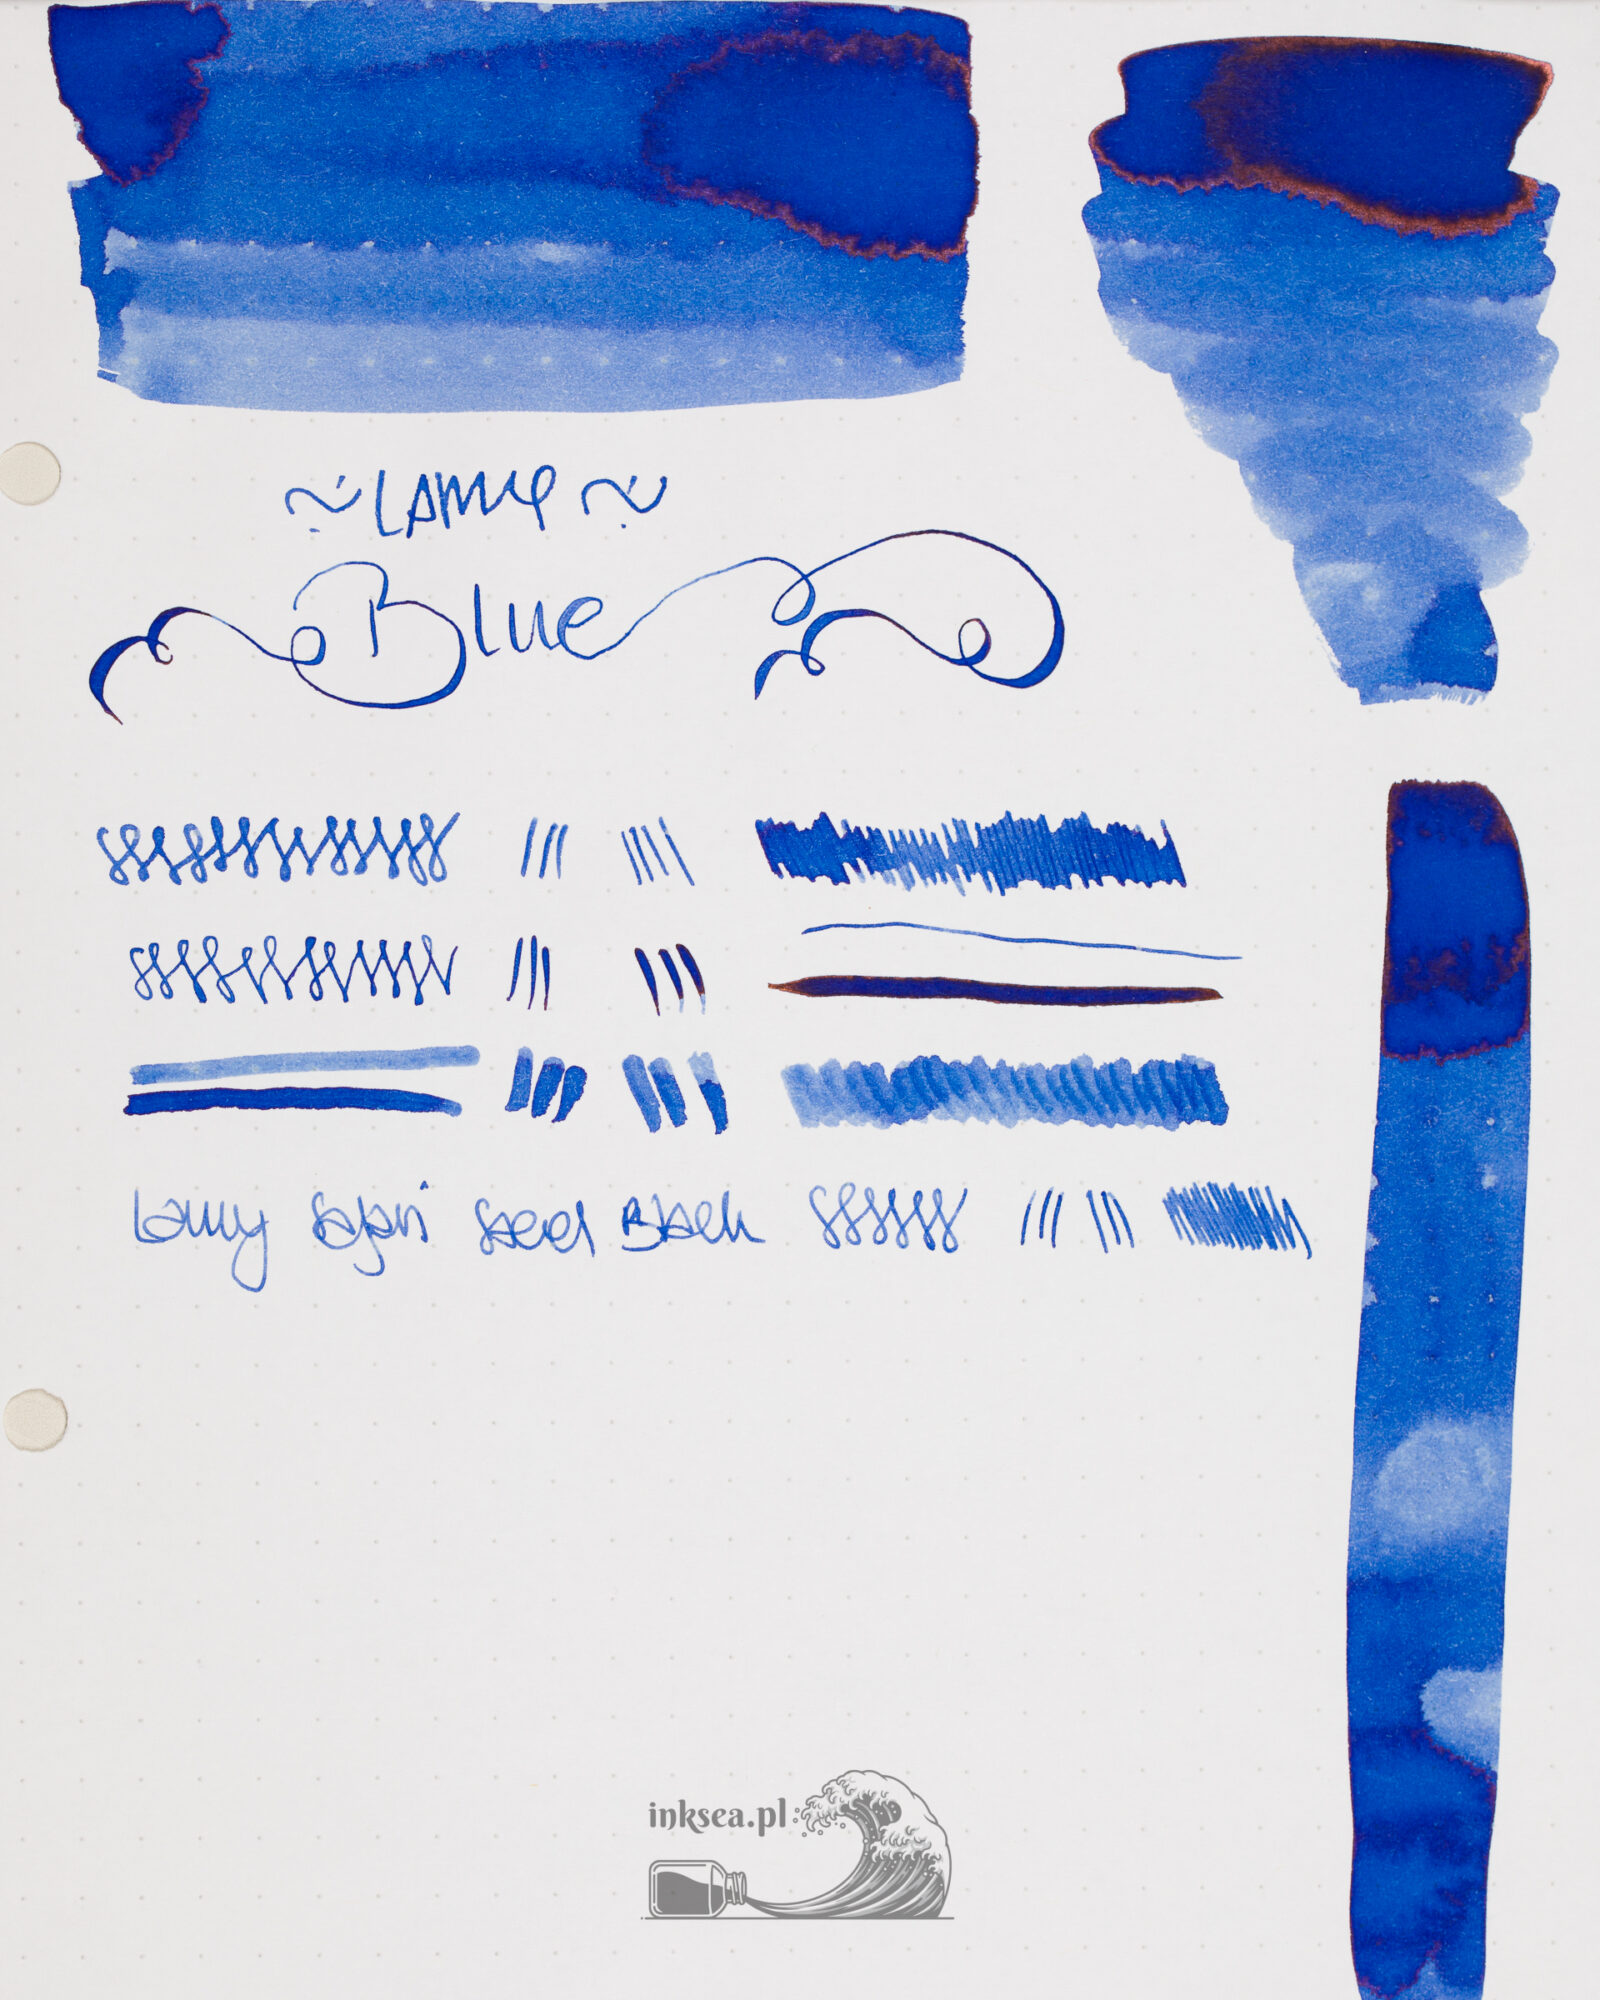 ~ LAMY ~
Blue
Lamy Safari Steel Black
inksea.pl